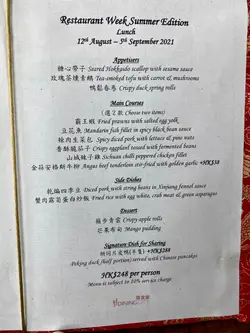 Restaurant Week Summer Edition
Lunch
12th August – 5th September 2021
Appetisers
糖心帶子 Seared Hokkaido scallop with sesame sauce
玫瑰茶燻素鵝 Tea-smoked tofu with carrot & mushrooms
鴨鬆春卷 Crispy duck spring rolls
Main Courses
(選2款 Choose two items)
霸王蝦 Fried prawns with salted egg yolk
豆豉魚 Mandarin fish fillet in spicy black bean sauce
辣肉生菜包 Spicy diced pork with lettuce & pine nuts
香酥脆茄子 Crispy eggplant tossed with fermented beans
山城辣子雞 Sichuan chilli peppered chicken fillet
金蒜安格斯牛柳 Angus beef tenderloin stir-fried with golden garlic +HK$38
Side Dishes
乾煸四季豆 Diced pork with string beans in Xinjiang fennel sauce
蟹肉露筍蛋白炒飯 Fried rice with egg white, crab meat & green asparagus
Dessert
Crispy apple rolls
芒果布甸 Mango pudding
Signature Dish for Sharing
+HK$248
Peking duck (half portion) served with Chinese pancakes
HK$248 per person
Menu is subject to 10% service charge
DININGCITY